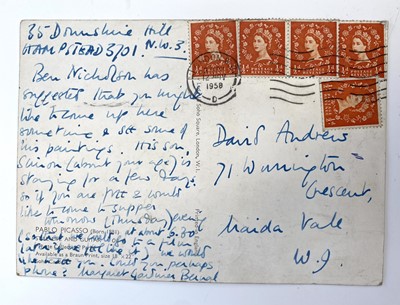 35 Downshire Hill
HAMPSTEAD 3701. N.W.3.
Ben Nicholson has
suggested that you might
like to come up here
sometime & see some of
his paintings. His son,
Simon (about your age) is
staying for a few days.
So if you are free & would
like to come to supper
tomorrow (Thursday) evening
at about 6.30
go to a film
we would
Could you perhaps
phone? Margaret Gardiner Bernal
David Andrews
71 Warrington
Crescent,
Maida Vale
W.9.
1958
PABLO PICASSO
Soho Square, London, W.1.